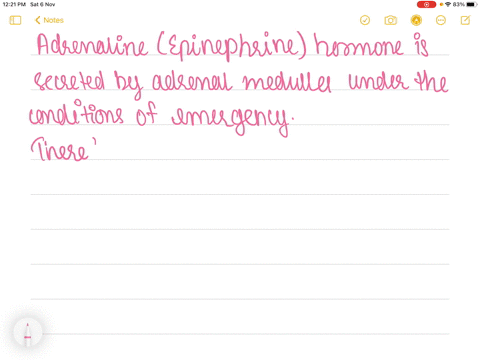 12:21 PM Sat 6 Nov
83%
Notes
Adrenaline (Epinephrine) hormone is
secreted by adrenal medulla under the
conditions of emergency.
There